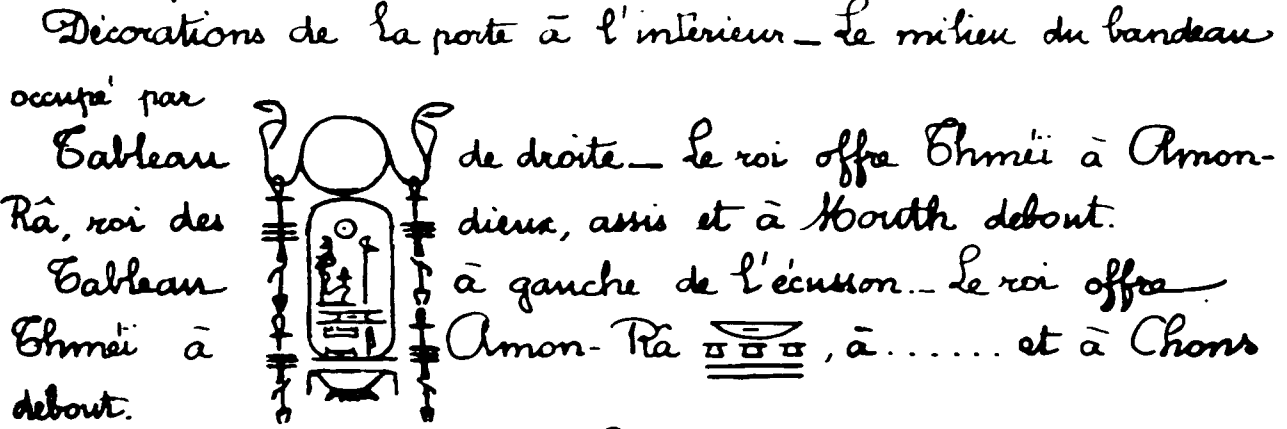 Décorations de la porte à l'intérieur _ Le milieu du bandeau
occupé par
Tableau de droite _ Le roi offre Thméï à Amon-
Râ, roi des dieux, assis et à Mouth debout.
Tableau à gauche de l'écusson _ Le roi offre
Thméi à Amon-Râ , à ...... et à Chons
debout.